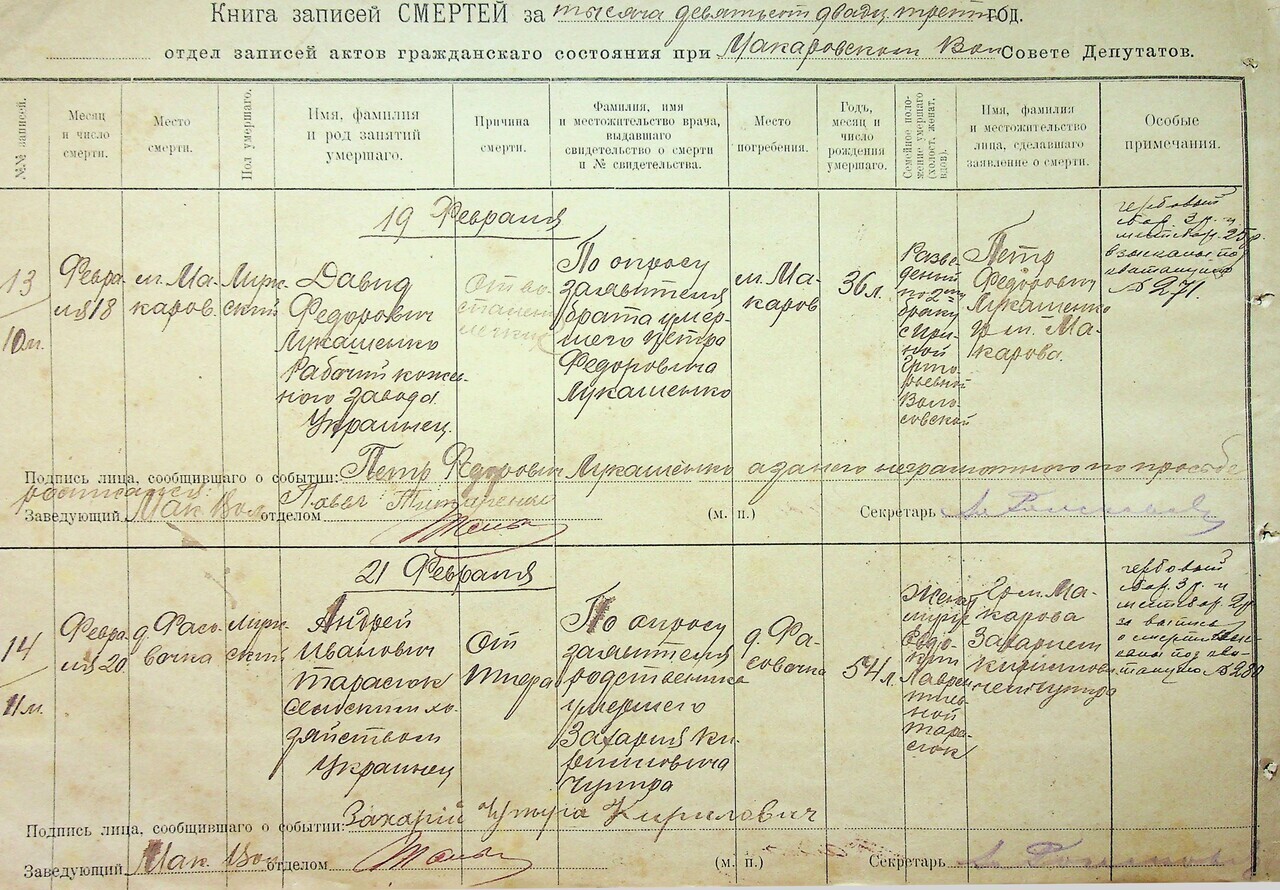 Книга записей СМЕРТЕЙ за тысяча девятьсот двадц. трет. год.
отдел записей актов гражданского состояния при Макаровском Вол Совете Депутатов.
№№ записей.
Месяц и число смерти.
Место смерти.
Пол умершаго.
Имя, фамилия и род занятий умершаго.
Причина смерти.
Фамилия, имя и местожительство врача, выдавшаго свидетельство о смерти и № свидетельства.
Место погребения.
Годъ, месяц и число рождения умершаго.
Семейное положение умершаго (холост, женат, вдов).
Имя, фамилия и местожительство лица, сделавшаго заявление о смерти.
Особые примечания.
19 Февраля
13
10м.
Февра
ля 18
м. Ма
каров.
Мужс
ский
Давид
Федорович
Лукашенко
Рабочий кожев
ного завода
Украинец.
От во
По опросу
заявителя
брата умер
шего Петра
Федоровича
Лукашенко
м. Ма
каров
36 л.
Разве
денный
по 2му
браку
с Ири
ной
Григо
рьевной
Воло
совской
Петр
Федорович
Лукашенко
гр. м. Ма
карова.
гербовый
сбор 3 р. и
местн сбор. 25 р.
взысканы по
квитанции
№ 271.
Подпись лица, сообщившаго о событии: Петр Федорович Лукашенко а за него неграмотного по просьбе
росписался:
Заведующий Мак Вол отделом Павел Титаренко
(м. п.) Секретарь
21 Февраля
14
11м.
Февра
ля 20
д. Фасо
вочка
Мужс
ский
Андрей
Иванович
Тарасюк
сельским хо
зяйством
Украинец
От
тифа
По опросу
заявителя
родственника
умершего
Захария Ки
рилловича
Чупира
д. Фа
совочка
54 л.
Женат
Евдо
кии
Лаврен
тьев
ной
Тара
сюк
Гр. м. Ма
карова
Захарием
Кириллови
чем
гербовый
сбор. 3 р. и
местн сбор. 2 р.
за запись
о смерти взыс
каны под кви
танцию № 280
Подпись лица, сообщившаго о событии: Захарий Кирилович
Заведующий Мак Вол отделом
(м. п.) Секретарь